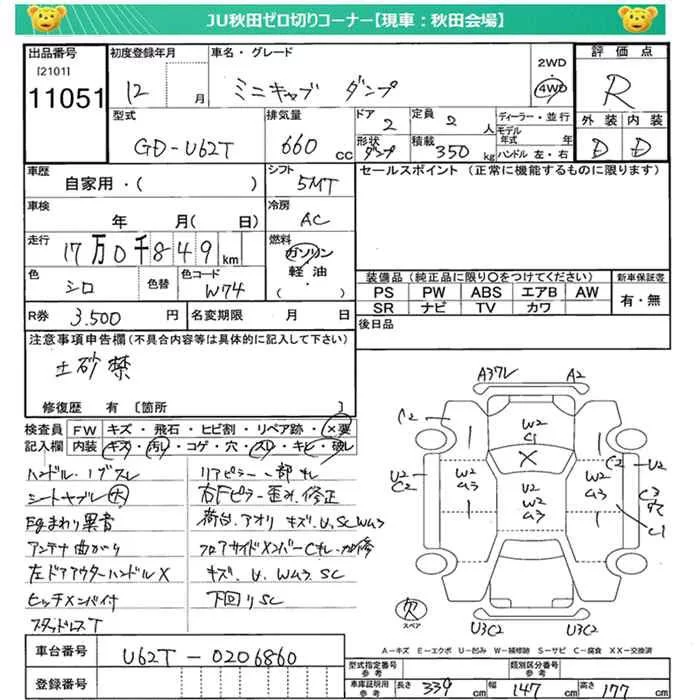 JU秋田ゼロ切りコーナー【現車：秋田会場】
出品番号 初度登録年月 車名・グレード 2WD 評価点
[2101] 11051 12 月 ミニキャブ ダンプ 4WD R
型式 排気量 ドア 定員 ディーラー・並行 外装 内装
GD-U62T 660 CC 2 2 人 モデル年式 年 D D
形状 ダンプ 積載 350 kg ハンドル 左・右
車歴 シフト セールスポイント（正常に機能するものに限ります）
自家用・（ ） 5MT
車検 冷房
年 月（ 日） AC
走行 燃料
17万0千849km ガソリン・軽油・（ ）
色 色替 色コード 装備品（純正品に限り○をつけてください） 新車保証書
シロ W74 PS PW ABS エアB AW 有・無
SR ナビ TV カワ
R券 3.500 円 名変期限 月 日 後日品
注意事項申告欄（不具合内容等は具体的に記入して下さい）
土砂禁
修復歴 有 [箇所 ]
検査員 FW キズ・飛石・ヒビ割・リペア跡・×要
記入欄 内装 キズ・汚レ・コゲ・穴・スレ・キレ・破レ
ハンドル・ノブスレ リアピラー一部キレ
シートヤブレ 大 右Fピラー歪み、修正
Egまわり異音 荷台、アオリ キズ、U、SC W3
アンテナ曲がり フロアサイドメンバーCキレ・加修
左ドアアウターハンドル× キズ、U、W3 SC
ヒッチメンバイ付 下回りSC
スタッドレスT
A3ワレ A2
C2 W2 C1
U2 C2 W2 a3 × U2 W2 a3 W2 a3 C2 U2 C3 C1
欠 スペア U3C2 U3C2
A－キズ E－エクボ U－凹み W－補修跡 S－サビ C－腐食 XX－交換済
車台番号 U62T-0206860
登録番号
型式指定番号 参考 類別区分番号 参考
車庫証明用 参考 長さ 339 cm 幅 147 cm 高さ 177 cm